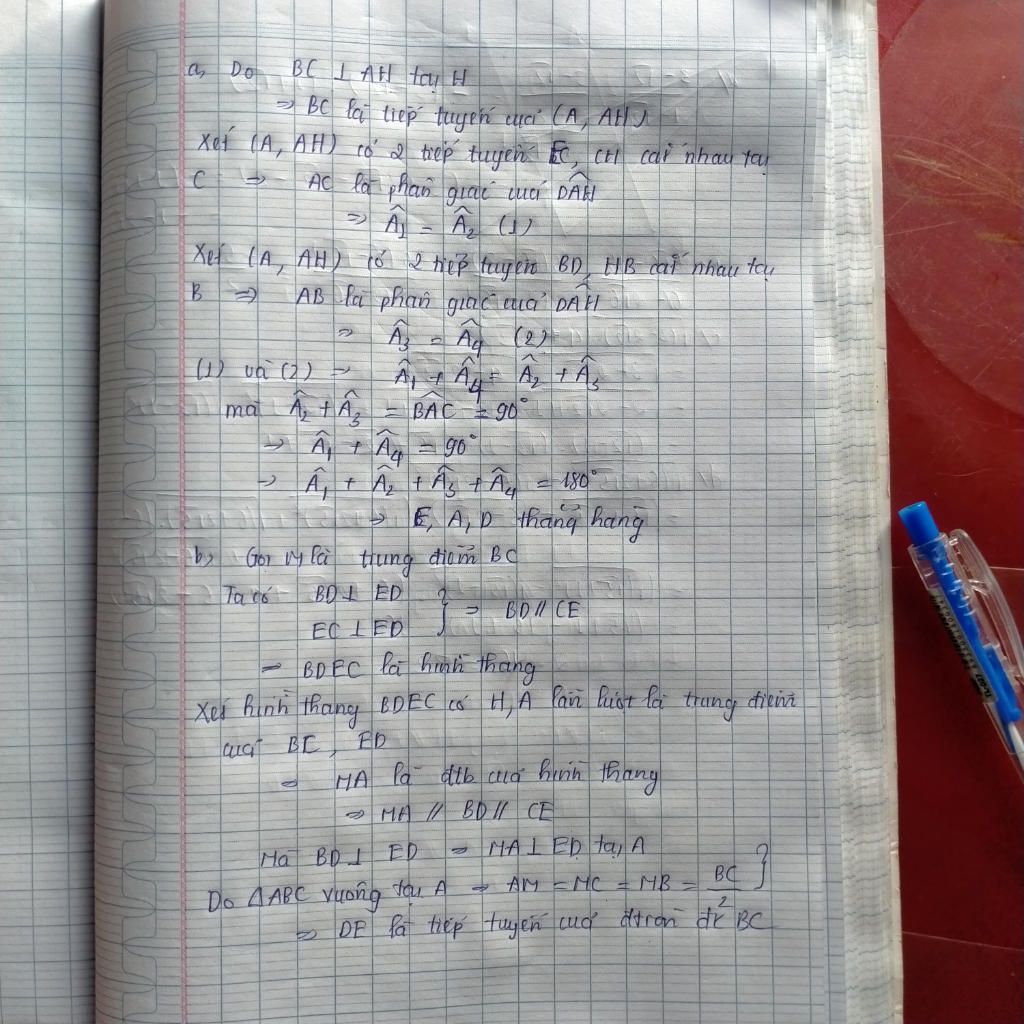 a, Do BC ⊥ AH tại H
⇒ BC là tiếp tuyến của (A, AH)
Xét (A, AH) có 2 tiếp tuyến EC, CH cắt nhau tại
C ⇒ AC là phân giác của DAH
⇒ Â₁ = Â₂ (1)
Xét (A, AH) có 2 tiếp tuyến BD, HB cắt nhau tại
B ⇒ AB là phân giác của DAH
⇒ Â₃ = Â₄ (2)
(1) và (2) ⇒ Â₁ + Â₄ = Â₂ + Â₃
mà Â₂ + Â₃ = BAC = 90°
⇒ Â₁ + Â₄ = 90°
⇒ Â₁ + Â₂ + Â₃ + Â₄ = 180°
⇒ E, A, D thẳng hàng
b, Gọi M là trung điểm BC
Ta có BD ⊥ ED
EC ⊥ ED } ⇒ BD // CE
⇒ BDEC là hình thang
Xét hình thang BDEC có H, A lần lượt là trung điểm
của BC, ED
⇒ MA là đtb của hình thang
⇒ MA // BD // CE
Mà BD ⊥ ED ⇒ MA ⊥ ED tại A
Do △ABC vuông tại A ⇒ AM = MC = MB = BC/2 }
⇒ DE là tiếp tuyến của đtròn đk BC